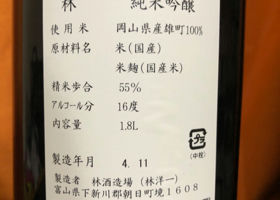 林 純米吟醸
使用米 岡山県産雄町100%
原材料名 米(国産)
米麹(国産米)
精米歩合 55%
アルコール分 16度
内容量 1.8L
プラ
(中栓)
製造年月 4.11
製造者 林酒造場(林洋一)
富山県下新川郡朝日町境1608